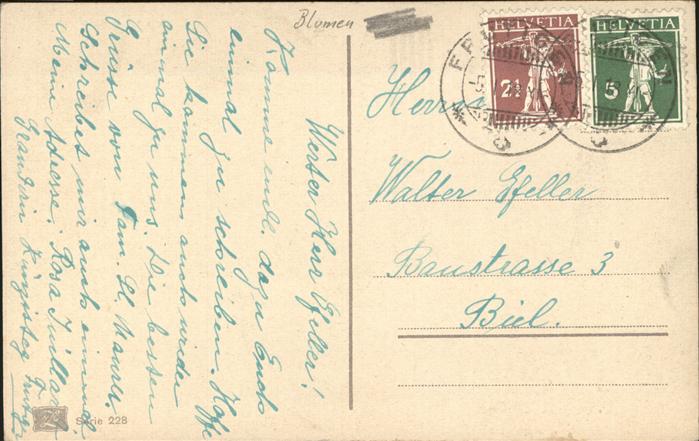 Blumen
HELVETIA
2½
HELVETIA
5
Herrn
Walter Gfeller
Baustrasse 3
Biel.
Werter Herr Gfeller!
Komme endl. dazu Euch
einmal zu schreiben. Hoffe
Sie kommen auch wieder
einmal zu uns. Die besten
Grüsse von Fam. Maurer.
Schreibet mir auch einmal
Meine Adresse: Rosa
Serie 228